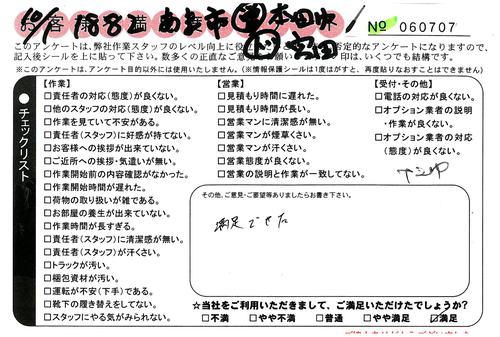 お客様満
No 060707
このアンケートは、弊社作業スタッフのレベル向上に役
否定的なアンケートになりますので、
記入後シールを上に貼って下さい。数多くの正直なご意見を
印は、いくつでも結構です。
※このアンケートは、アンケート目的以外には使用いたしません。(※情報保護シールは1度はがすと、再度貼りなおすことはできません)
●チェックリスト
【作業】
□責任者の対応(態度)が良くない。
□他のスタッフの対応(態度)が良くない。
□作業を見ていて不安がある。
□責任者(スタッフ)に好感が持てない。
□お客様への挨拶が出来ていない。
□ご近所への挨拶・気遣いが無い。
□作業開始前の内容確認がなかった。
□作業開始時間が遅れた。
□荷物の取り扱いが雑である。
□お部屋の養生が出来ていない。
□作業時間が長すぎる。
□責任者(スタッフ)に清潔感が無い。
□責任者(スタッフ)が汗くさい。
□トラックが汚い。
□梱包資材が汚い。
□運転が不安(下手)である。
□靴下の履き替えをしてない。
□スタッフにやる気がみられない。
【営業】
□見積もり時間に遅れた。
□見積もり時間が長い。
□営業マンに清潔感が無い。
□営業マンが煙草くさい。
□営業マンが汗くさい。
□営業態度が良くない。
□営業の説明と作業が一致してない。
【受付・その他】
□電話の対応が良くない。
□オプション業者の説明
・作業が良くない。
□オプション業者の対応
(態度)が良くない。
その他、ご意見・ご要望等ありましたらお書き下さい。
満足できた
☆当社をご利用いただきまして、ご満足いただけたでしょうか?
□不満 □やや不満 □普通 □やや満足 ☑満足